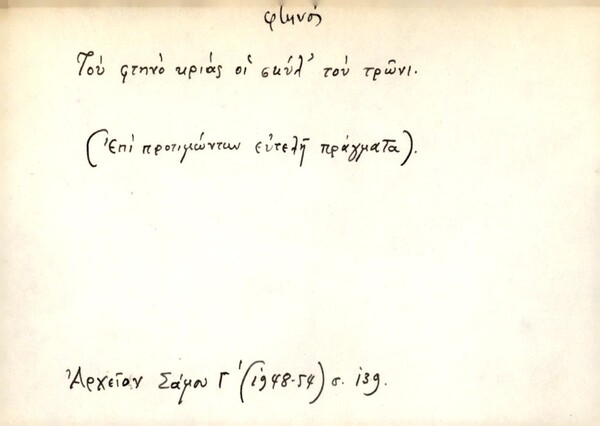 φτηνός
Τοὺ φτηνὸ κριάς οἱ σκύλ' τοὺ τρῶνι.
(Ἐπὶ προτιμώντων εὐτελῆ πράγματα).
Ἀρχεῖον Σάμου Γ' (1948-54) σ. 139.